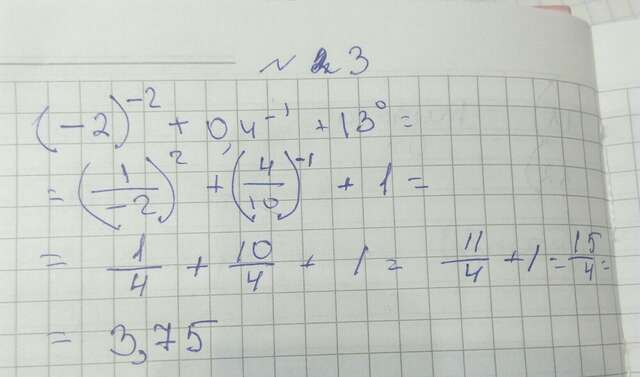 № 23
(-2)⁻² + 0,4⁻¹ + 13⁰ =
= (1/-2)² + (4/10)⁻¹ + 1 =
= 1/4 + 10/4 + 1 = 11/4 + 1 = 15/4 =
= 3,75